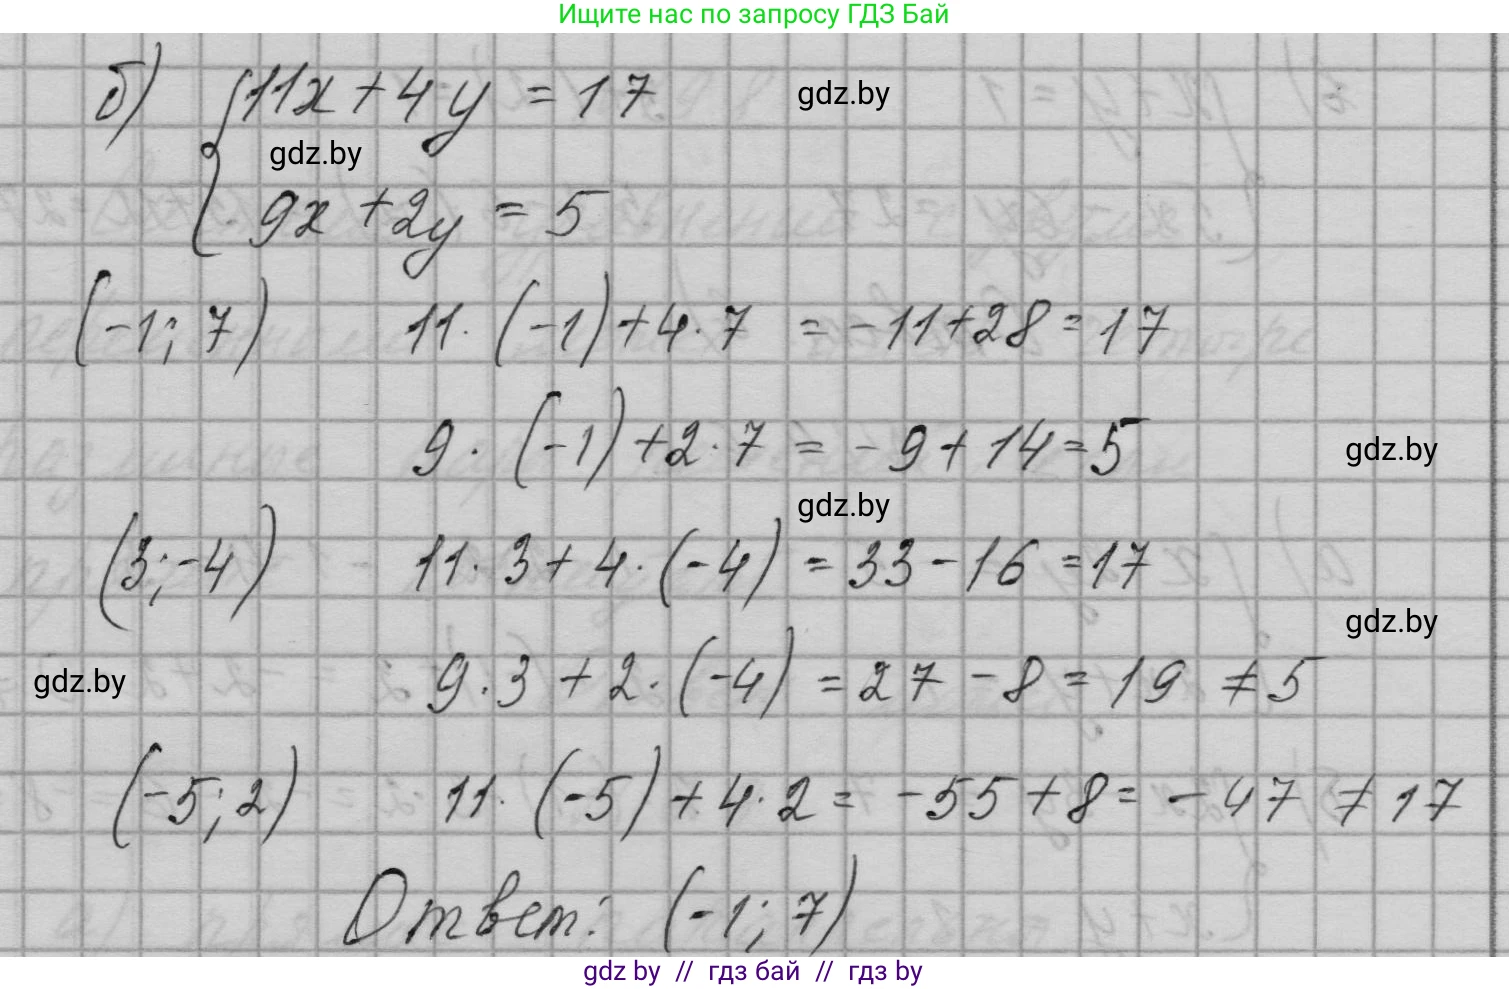 Ищите нас по запросу ГДЗ Бай
б) 11x + 4y = 17
gdz.by
gdz.by
9x + 2y = 5
(-1; 7) 11 · (-1) + 4 · 7 = -11 + 28 = 17
9 · (-1) + 2 · 7 = -9 + 14 = 5
gdz.by
gdz.by
(3; -4) 11 · 3 + 4 · (-4) = 33 - 16 = 17
gdz.by
gdz.by
9 · 3 + 2 · (-4) = 27 - 8 = 19 ≠ 5
(-5; 2) 11 · (-5) + 4 · 2 = -55 + 8 = -47 ≠ 17
Ответ: (-1; 7)
gdz by // гдз бай // гдз by